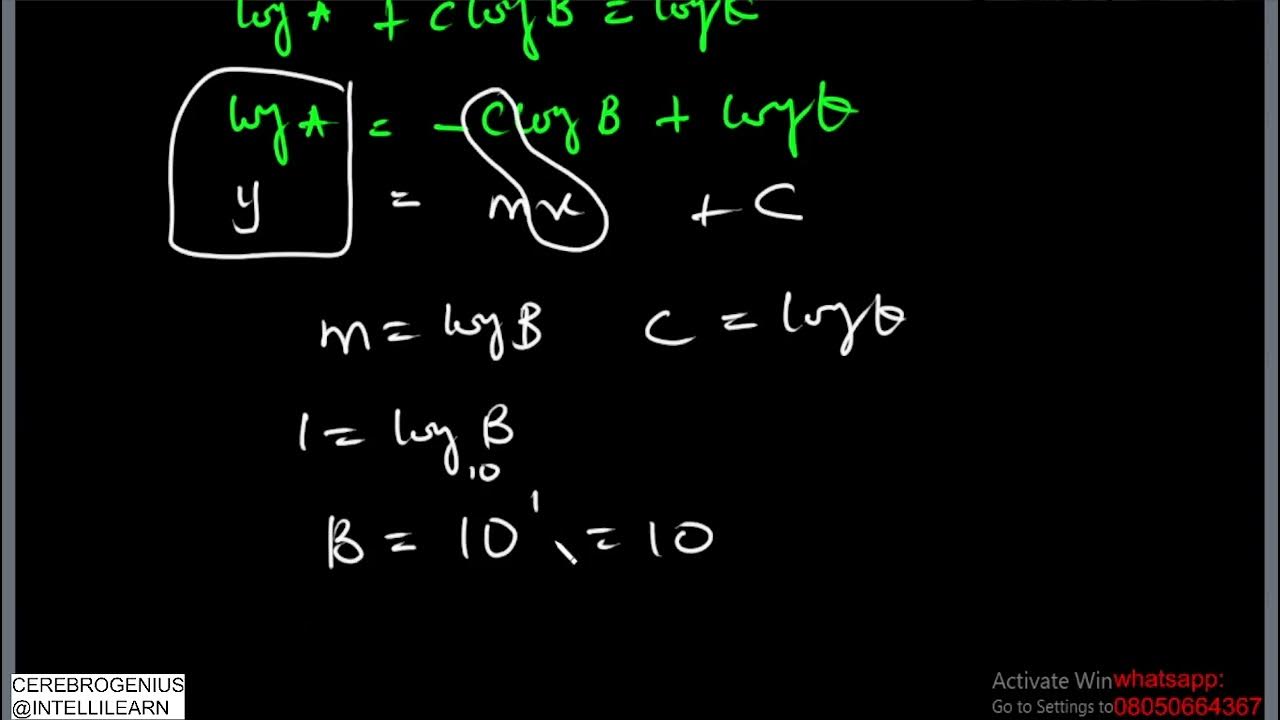 log A + C log B = log θ
log A = - C log B + log θ
y = mx + C
m = log B C = log θ
1 = log₁₀ B
B = 10¹ = 10
CEREBROGENIUS
@INTELLILEARN
Activate Win whatsapp:
Go to Settings to 08050664367